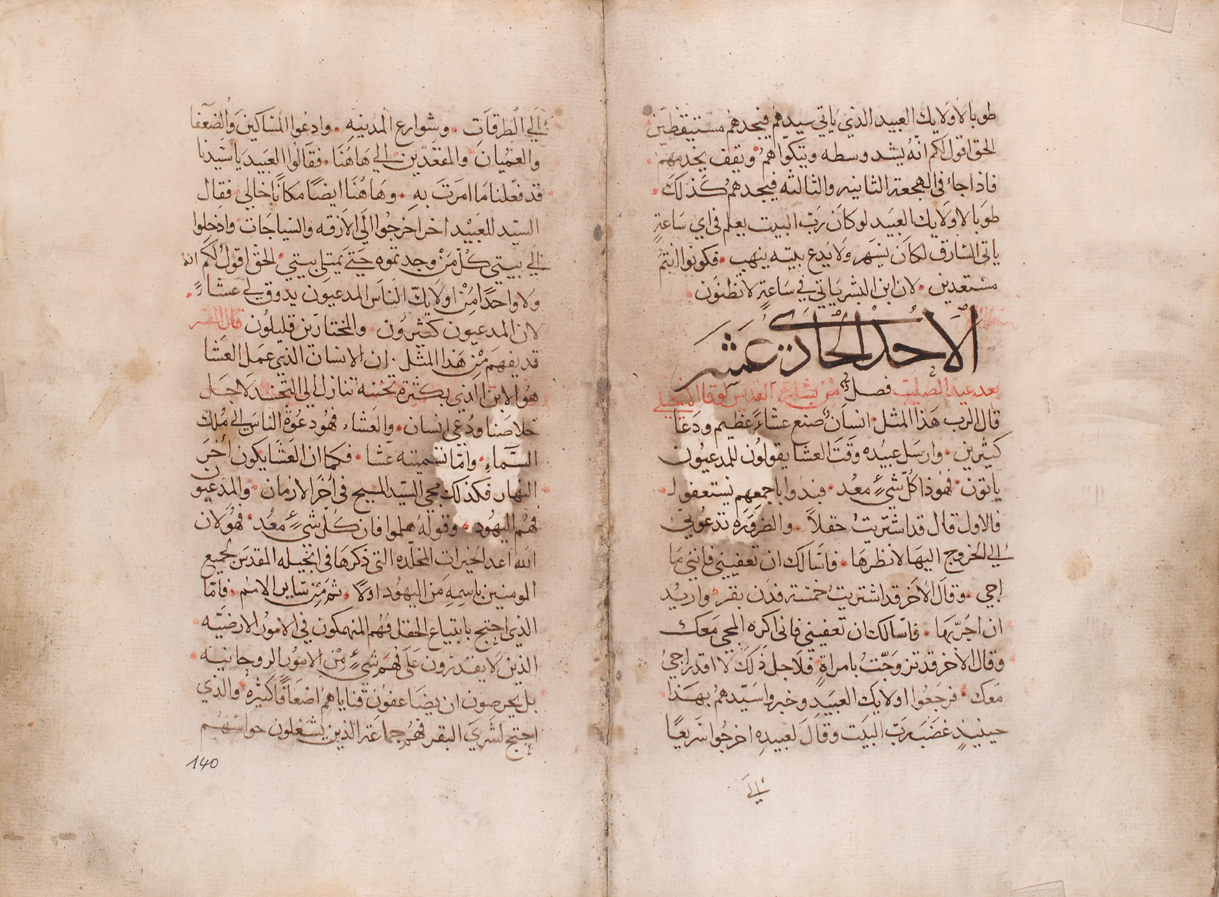 طوبا لاولايك العبيد الذي ياتي سيدهم فيجدهم مستيقظين
الحق اقول لكم انه يشد وسطه ويتكوا هم ويقف يخدمهم
فاذا جا في الهجعة الثانيه والثالثه فيجدهم كذلك
طوبا لاولايك العبيد لو كان رب البيت يعلم في اي ساعة
ياتي السارق لكان يسهر ولا يدع بيته ينهب فكونوا انتم
مستعدين لان ابن البشر ياتي في ساعة لا تظنون
الاحد الحادي عشر
بعد عيد الصليب فصل من بشارة القديس لوقا الانجيلي
قال الرب هذا المثل انسان صنع عشاء عظيم ودعا
كثيرين وارسل عبيده وقت العشا يقولون للمدعيون
ياتون فهوذا كل شيء معد فبدوا باجمعهم يستعفو
فالاول قال قد اشتريت حقلاً والضروره تدعوني
الي الخروج اليها لانظرها فاسالك ان تعفيني فانني ما
اجي وقال الاخر قد اشتريت خمسة فدن بقر واريد
ان اجربها فاسالك ان تعفيني فاني اكره المجي معك
وقال الاخر قد تزوجت بامراة فلاجل ذلك لا اقدر اجي
معك فرجعوا اولايك العبيد وخبروا سيدهم بهذا
حينيذ غضب رب البيت وقال لعبيده اخرجوا سريعاً
الي
الي الطرقات وشوارع المدينه وادعوا المساكين والضعفا
والعميان والمقعدين الي هاهنا فقالوا العبيد يا سيدنا
قد فعلنا ما امرت به وهاهنا ايضا مكاناً خالي فقال
السيد للعبيد اخرا اخرجوا الي الازقه والسياجات وادخلوا
الي بيتي كل من وجدتموه حتي يمتلي بيتي الحق اقول لكم انه
ولا واحداً من اولايك الناس المدعيون يدوق لي عشاءً
لان المدعيون كثيرون والمختارين قليلون قال المفسر
قد يفهم من هذا المثل ان الانسان الذي عمل العشا
هو الابن الذي بكثرة تحننه تنازل الي التجسد لاجل
خلاصنا ودعي انسان والعشاء فهو دعوة الناس الي ملك
السماء واما تسميته عشا فكما ان العشا يكون اخر
النهار فكذلك مجي السيد المسيح في اخر الازمان والمدعيو
فهم اليهود وقوله هلموا فان كل شيء معد فهو لان
الله اعد الخيرات المخلده التي ذكرها في انجيله المقدس لجميع
المومنين باسمه من اليهود اولا ثم من ساير الامم فاما
الذي احتج بابتياع الحقل فهم المنهمكون في الامور الارضيه
الذين لا يقدرون على فهم شيء من الامور الروحانيه
بل يحرصون ان يضاعفون قناياهم اضعافا كثيره والذي
احتج لشري البقر فهم جماعة الذين يشغلون حواسهم
140